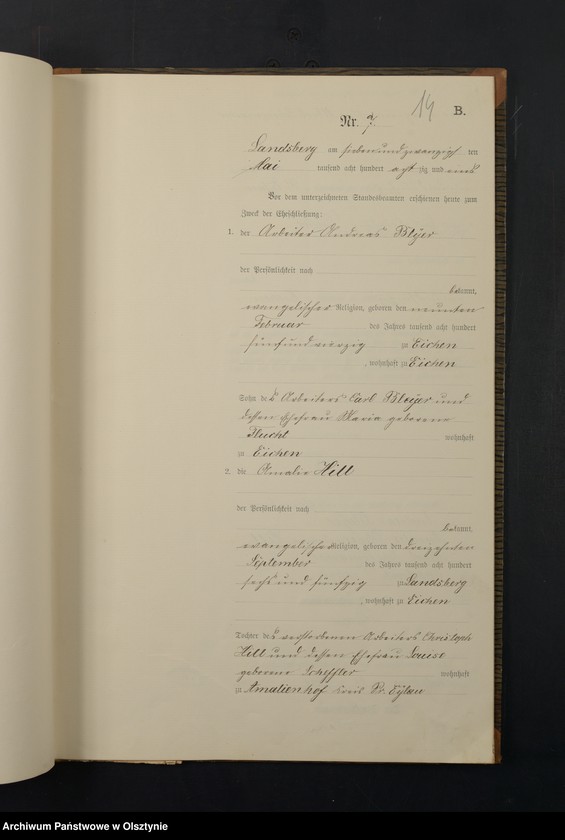 14 B.
Nr. 7.
Landsberg am siebenundzwanzig ten
Mai tausend acht hundert acht zig und eins
Vor dem unterzeichneten Standesbeamten erschienen heute zum
Zweck der Eheschließung:
1. der Arbeiter Andreas Bleyer
der Persönlichkeit nach
bekannt,
evangelischer Religion, geboren den neunten
Februar des Jahres tausend acht hundert
fünfundvierzig zu Eichen
, wohnhaft zu Eichen
Sohn des Arbeiters Carl Bleyer und
dessen Ehefrau Maria geborene
Flucht wohnhaft
zu Eichen
2. die Amalie Hill
der Persönlichkeit nach
bekannt,
evangelischer Religion, geboren den dreizehnten
September des Jahres tausend acht hundert
sechs und fünfzig zu Landsberg
, wohnhaft zu Eichen
Tochter des verstorbenen Arbeiters Christoph
Hill und dessen Ehefrau Louise
geborene Scheffler wohnhaft
zu Amalienhof Kreis Pr. Eylau
Archiwum Państwowe w Olsztynie